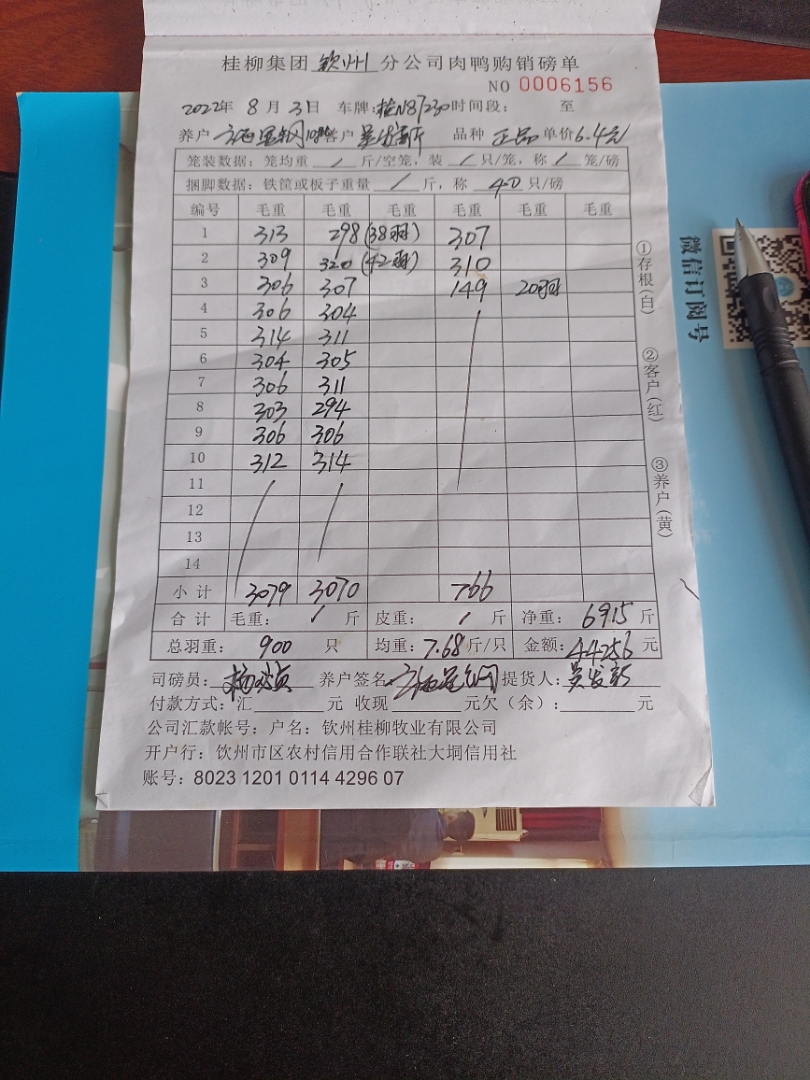 桂柳集团 钦州 分公司肉鸭购销磅单
NO 0006156
2022年 8月3日 车牌:桂N87230 时间段: 至
养户 客户 品种 正品 单价6.4元
笼装数据:笼均重 / 斤/空笼,装 / 只/笼,称 / 笼/磅
捆脚数据:铁筐或板子重量 / 斤,称 40 只/磅
编号 毛重 毛重 毛重 毛重 毛重 毛重
1 313 298 (38羽) 307
2 309 320 (42羽) 310
3 306 307 149 20羽
4 306 304
5 314 311
6 304 305
7 306 311
8 303 294
9 306 306
10 312 314
11
12
13
14
小计 3079 3070 766
合计 毛重: / 斤 皮重: / 斤 净重: 6915 斤
总羽重: 900 只 均重:7.68斤/只 金额:44256元
司磅员: 养户签名 提货人:吴发新
付款方式:汇 元 收现 元欠(余): 元
公司汇款帐号:户名:钦州桂柳牧业有限公司
开户行:钦州市区农村信用合作联社大垌信用社
账号:8023 1201 0114 4296 07
①存根(白)
②客户(红)
③养户(黄)
微信订阅号